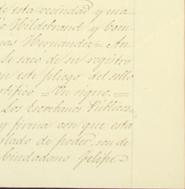 de esta vecindad y ma
Hildebrant y Com
cas Hernandez = An
se saco de su registro
en este pliego del sello
tifico = Un signo =
Los Escribanos Publicos
y firma con que esta
slado de poder, son de
Ciudadano Felipe